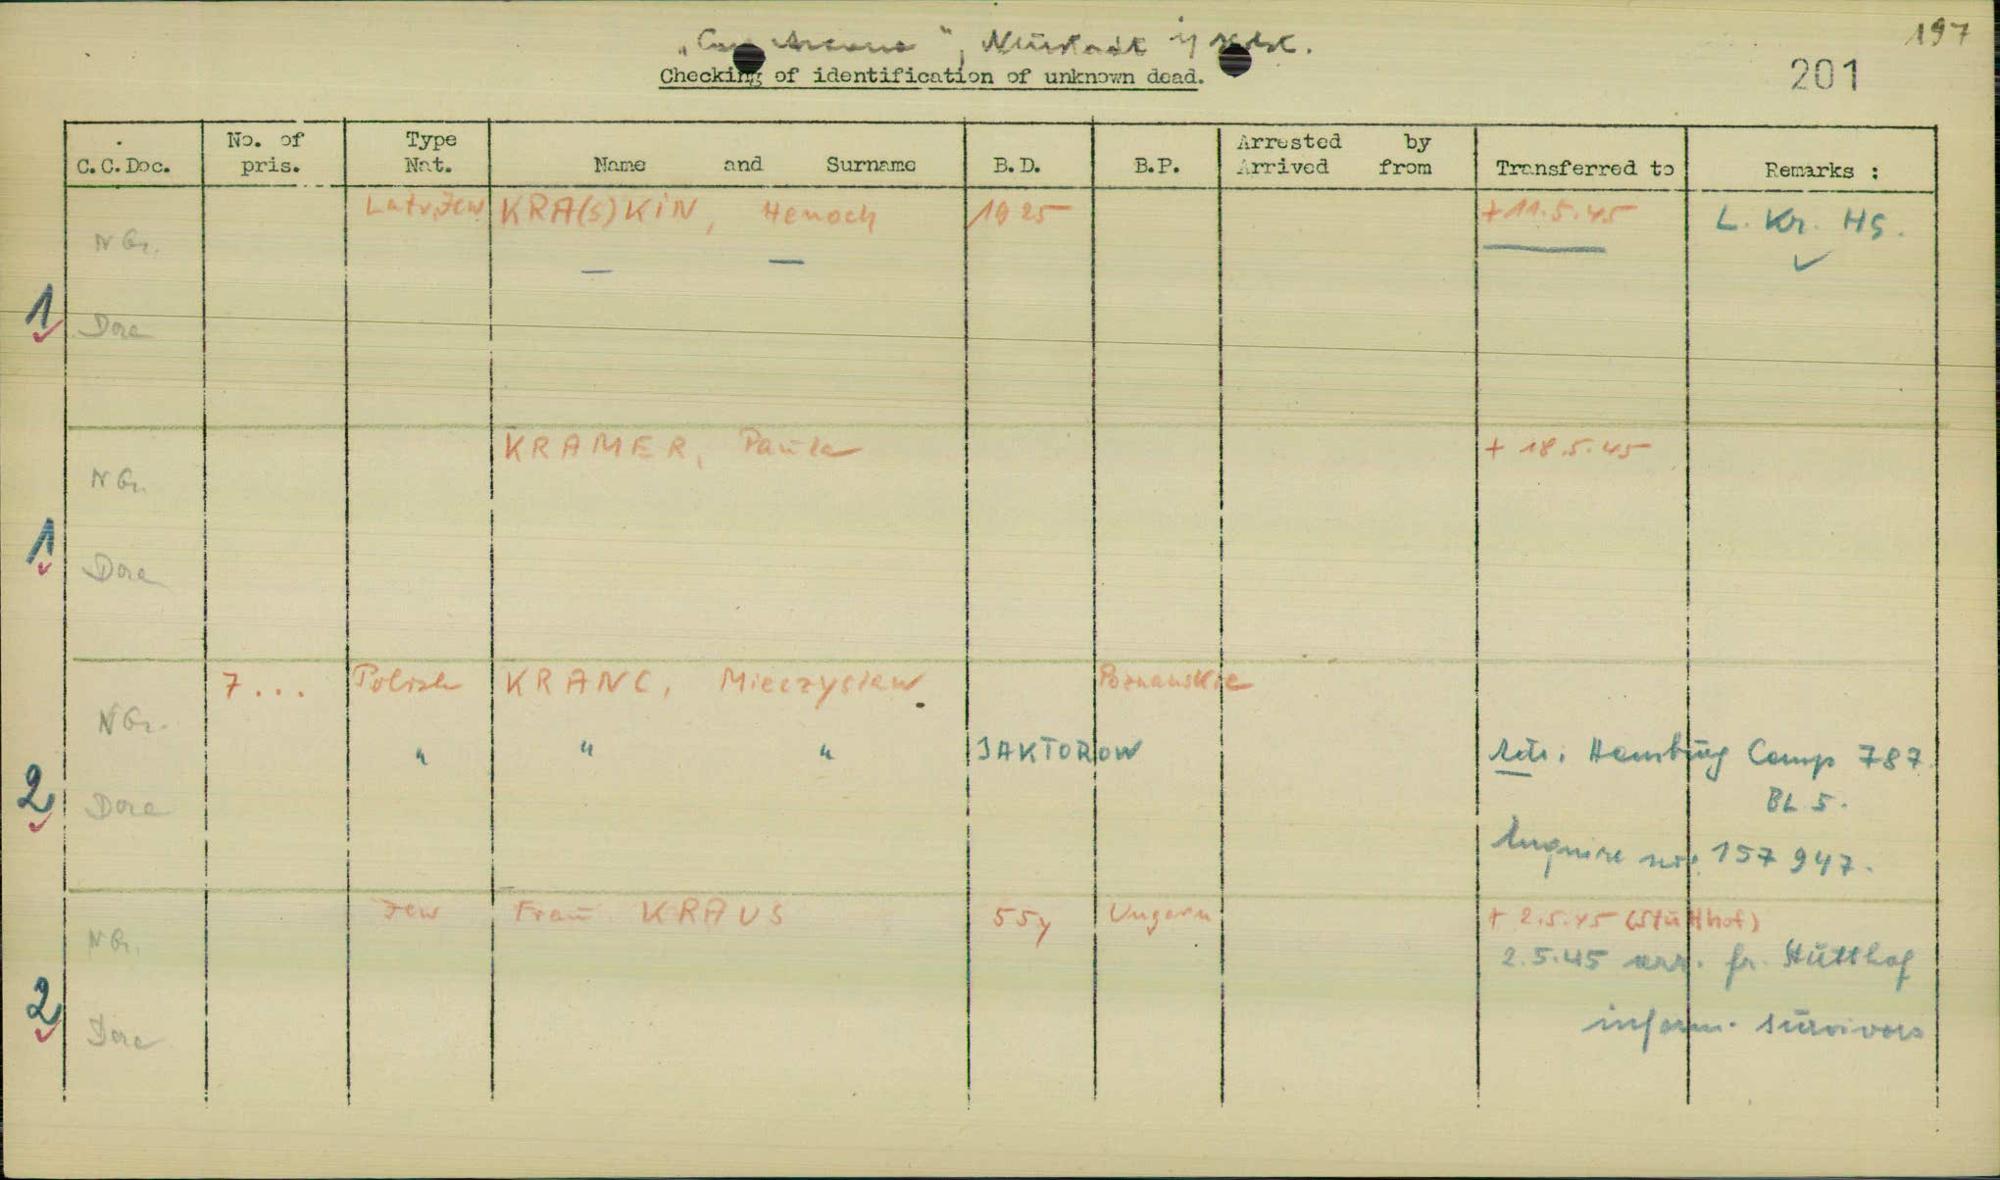 197
"Cap Arcona", Neustadt i/ Holst.
201
Checking of identification of unknown dead.
C.C.Doc. No. of pris. Type Nat. Name and Surname B.D. B.P. Arrested by Arrived from Transferred to Remarks :
Latv. Jew KRA(s)KIN, Henoch 1925 + 11.5.45 L. Kr. HS.
N Gr.
1 Dora
KRAMER, Paula + 18.5.45
N Gr.
1 Dora
7... Polish KRANC, Mieczyslaw Poznanskie
N Gr.
" " " JAKTOROW Hamburg Camp 787
2 Dora BL 5.
Inquire no: 157 947.
Jew Frau KRAUS 55y Ungarn + 2.5.45 (Stutthof)
N Gr. 2.5.45 arr. fr. Stutthof
2 Dora inform. survivors